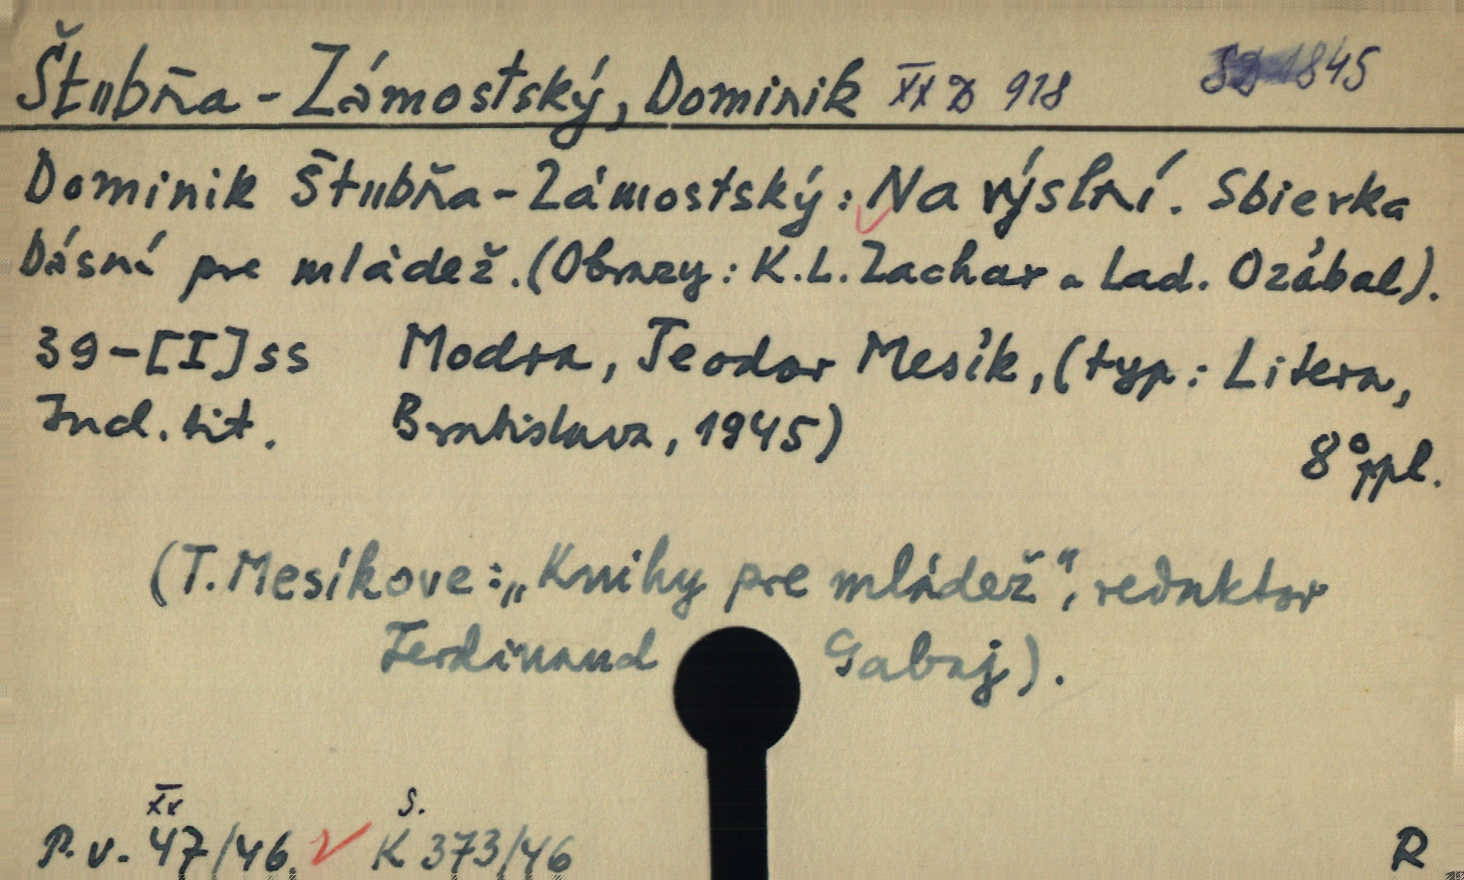 Štubňa - Zámostský, Dominik XX D 918 1845
Dominik Štubňa - Zámostský: Na výslní. Sbierka
básní pre mládež. (Obrazy: K. L. Zachar a Lad. Ozábal).
39-[I] ss Modra, Teodor Mesík, (typ: Litera,
Ind. tit. Bratislava, 1945)
8° ppl.
(T. Mesíkove: „Knihy pre mládež", redaktor
Ferdinand Gabaj).
XX S.
P. v. 47/46. K 373/46 R